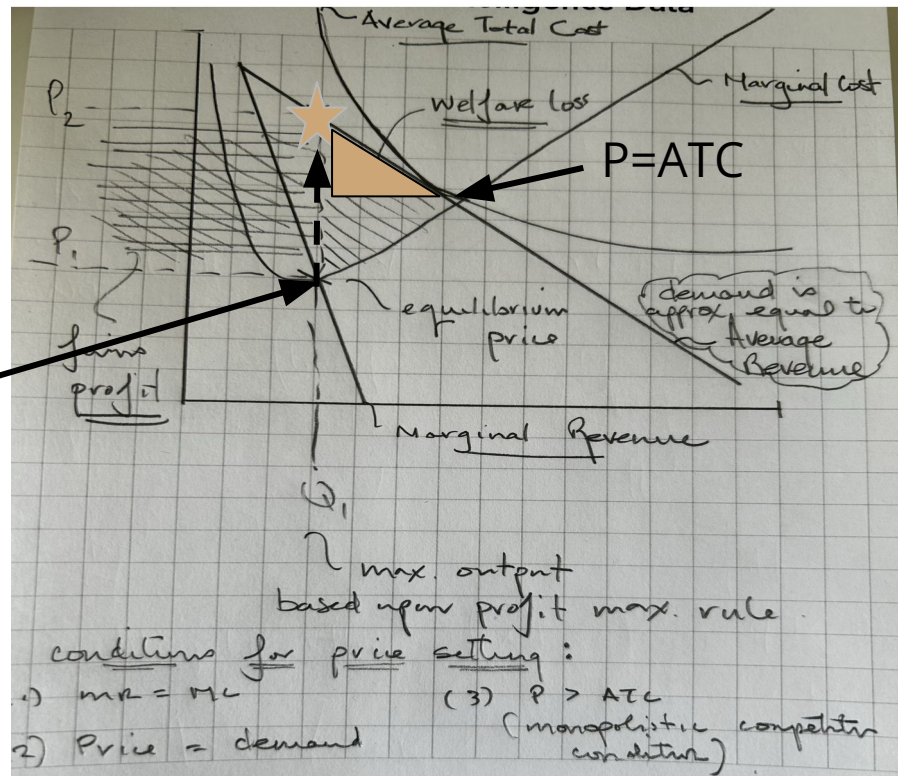 Average Total Cost
Marginal Cost
P2
Welfare loss
P=ATC
P1
equilibrium
price
demand is
approx. equal to
Average
Revenue
gains
profit
Marginal Revenue
Q1
max. output
based upon profit max. rule.
conditions for price setting :
1) MR = MC
(3) P > ATC
(monopolistic competitn
conditn)
2) Price = demand